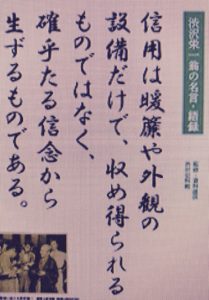 渋沢栄一翁の名言・語録
監修・資料提供
渋沢史料館
信用は暖簾や外観の
設備だけで、収め得られる
ものではなく、
確乎たる信念から
生ずるものである。